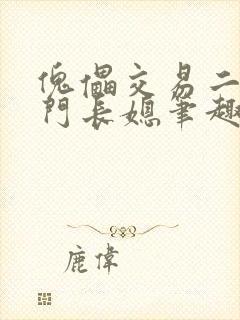 傀儡交易二
門長媳筆趣
鹿偉